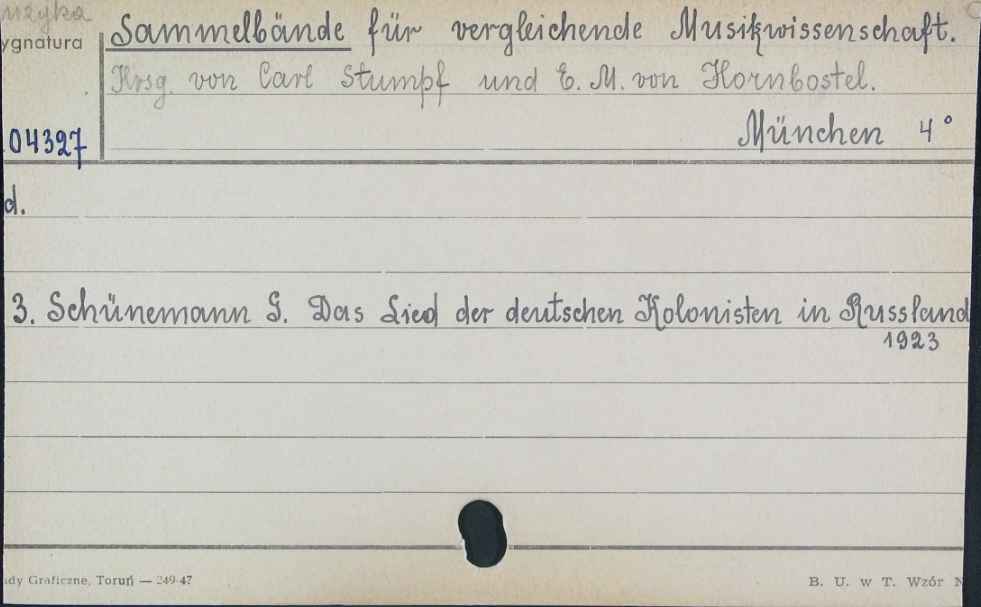 muzyka
ygnatura
Sammelbände für vergleichende Musikwissenschaft.
Hrsg. von Carl Stumpf und E. M. von Hornbostel.
04327
München 4°
d.
3. Schünemann G. Das Lied der deutschen Kolonisten in Russland
1923
ady Graficzne, Toruń — 249-47
B. U. w T. Wzór N